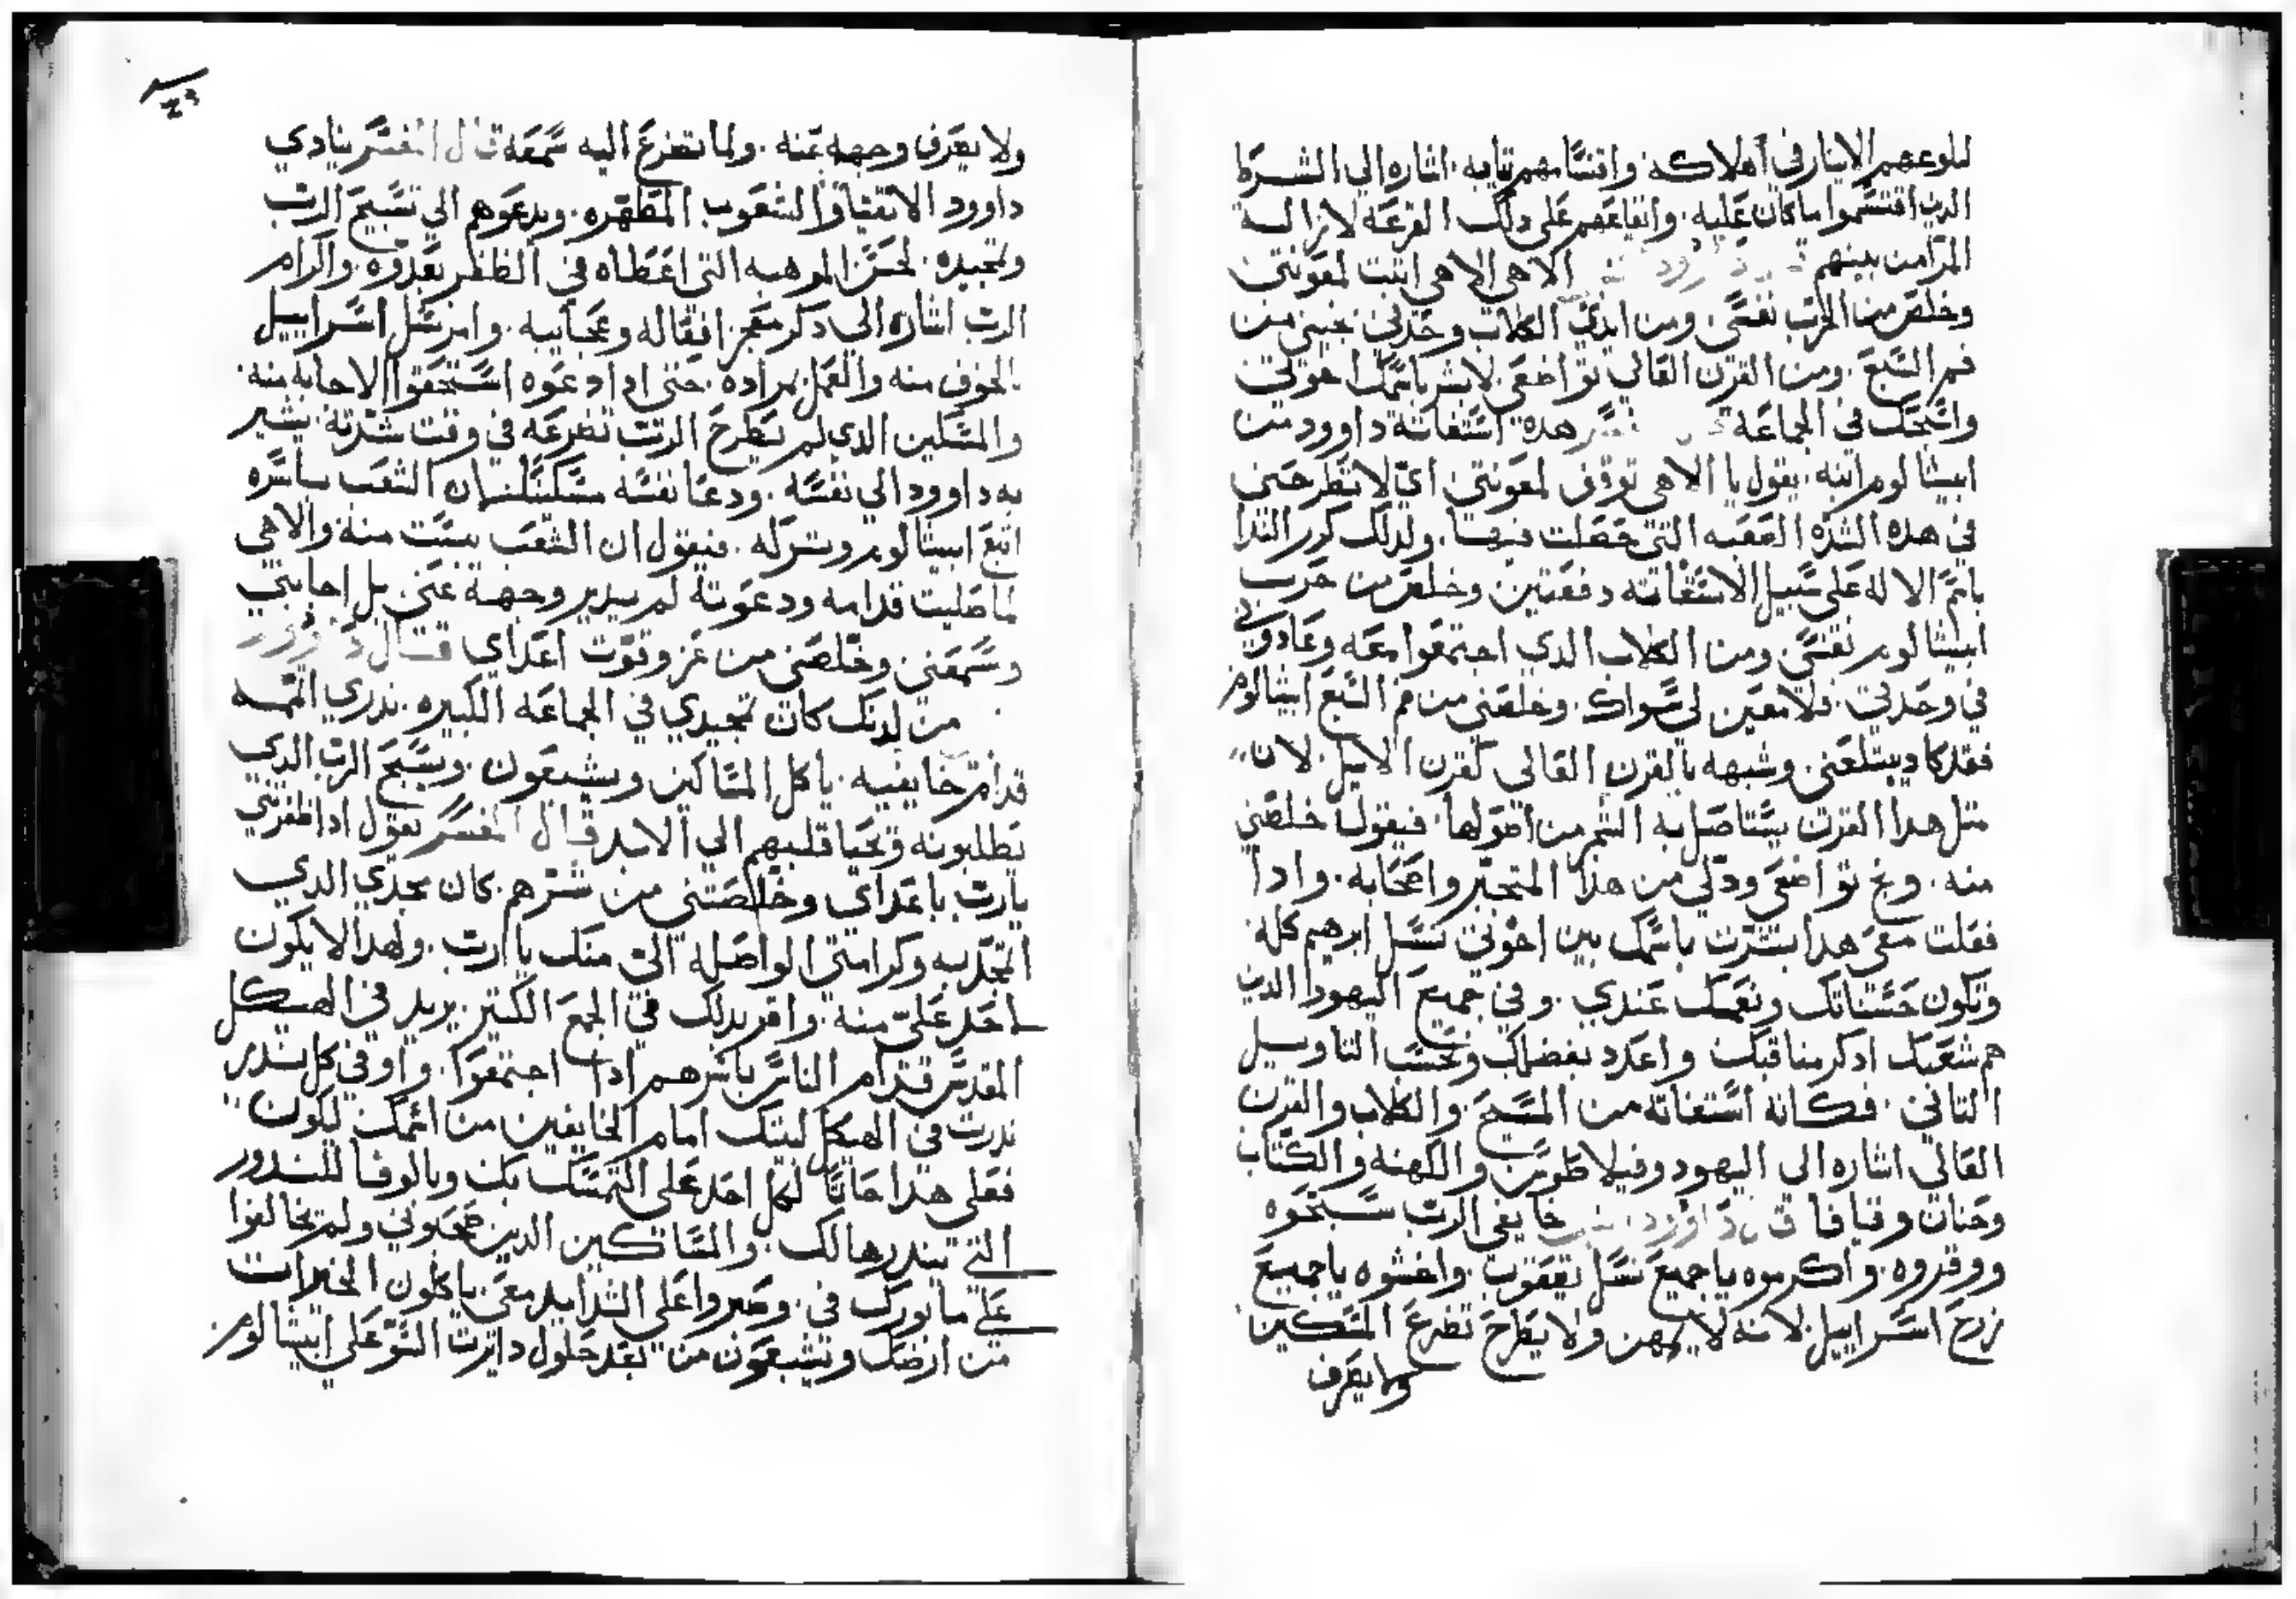 لبلوغهم الايثار في اهلاكه واقتسامهم ثيابه اشاره الي الشرط
الدين اقتسموا ما كان عليه وايقاعهم علي دلك القرعه لازاله
المرا من بينهم الاهي الاهي اثبت لمعونتي
وخلص من الحرب نفسي ومن ايدي الكلاب وحدتي نجيني من
فم السبع ومن القرن العالي تواضعي لابشر باسمك اخوتي
واسبحك في الجماعه هده استغاثة داوود من
ابيشالوم ابنه يقول يا الاهي توقف لمعونتي اي لا تطرحني
في هده الشده الصعبه التي حصلت فيها ولدلك كرر الندا
باسم الاله علي سبيل الاستغاثه دفعتين وخلص من حرب
ابيشالوم نفسي ومن الكلاب الدي اجتمعوا معه وعادوني
في وحدتي فلا معين لي سواك وخلصني من فم السبع ابيشالوم
فقد كاد يبتلعني وشبهه بالقرن العالي كقرن الايل لان
مثل هدا القرن يستاصل به الشجر من اصولها فيقول خلصني
منه ونج تواضعي ودلي من هدا المتجبر واصحابه وادا
فعلت معي هدا بشرت باسمك بين اخوتي نسل ابرهيم كله
وتكون حسناتك ونعمك عندي وفي جميع اليهود الدين
هم شعبك ادكر مناقبك واعدد بفضلك وبحسب التاويل
الثاني فكانه استغاثه من المسيح والكلاب والقرن
العالي اشاره الي اليهود وفيلاطوس والكهنه والكتاب
وحنان وقيافا قال داوود خايفي الرب سبحوه
ووقروه واكرموه يا جميع نسل يعقوب واخشوه يا جميع
زرع اسراييل لانه لا يمهن ولا يطرح تضرع المسكين
ولا يصرف
ولا يصرف وجهه عنه ولما تضرع اليه سمعه قال المفسر ينادي
داوود الاتقيا والشعوب المطهره ويدعوهم الي تسبيح الرب
وتمجيده لحسن الموهبه التي اعطاه في الظفر بعدوه واكرام
الرب اشاره الي دكر معجز افعاله وعجايبه وامر نسل اسراييل
بالخوف منه والعمل بمراده حتي ادا دعوه استحقوا الاجابه منه
والمسكين الدي لم يطرح الرب تضرعه في وقت شدته يشير
به داوود الي نفسه ودعا نفسه مسكينا لان الشعب باسره
اتبع ابيشالوم وتركه فيقول ان الشعب يبست منه والاهي
لما صليت قدامه ودعوته لم يدير وجهه عني بل اجابني
وسمعني وخلصني من عز وقوت اعداي قال داوود
من لدنك كان تمجيدي في الجماعه الكبيره ندري اتممه
قدام خايفيه ياكل المساكين ويشبعون ويسبح الرب الدي
يطلبونه وتحيا قلبهم الي الابد قال المفسر يقول ادا ظفرتني
يارب باعداي وخلصتني من شرهم كان مجدي الدي
اتمجد به وكرامتي الواصلة الي منك يا رب ولهدا لا يكون
لاحد علي منه واقر بدلك في الجمع الكثير يريد في الهيكل
المقدس قدام الناس باسرهم ادا اجتمعوا واوفي كل ندر
ندرت في الهيكل لبيتك امام الخايفين من اسمك ليكون
فعلي هدا حاثا لكل احد علي التمسك بك وبالوفا للندور
التي يندرها لك والمساكين الدين صحبوني ولم يخالفوا
علي ما بورك في وصبروا علي الشدايد معي ياكلون الخيرات
من ارضك ويشبعون من بعد حلول دايرت السو علي ابيشالوم